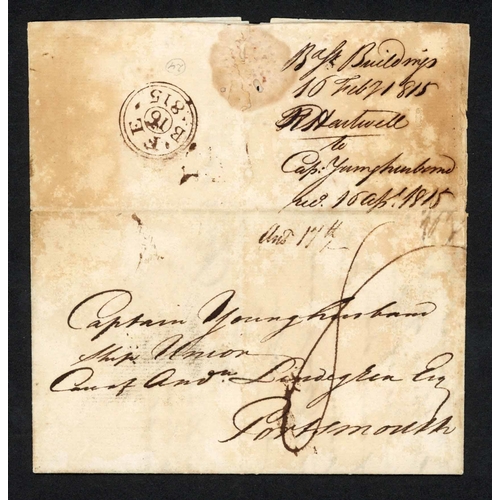 Bask Buildings
16 Feby 1815
R Hartwell
to
Capt. Younghusband
recd. 16 Apl. 1815
Ansd 17th
FE
B
16
815
Captain Younghusband
Ship Union
Care of Andw Lindegren Esq
Portsmouth